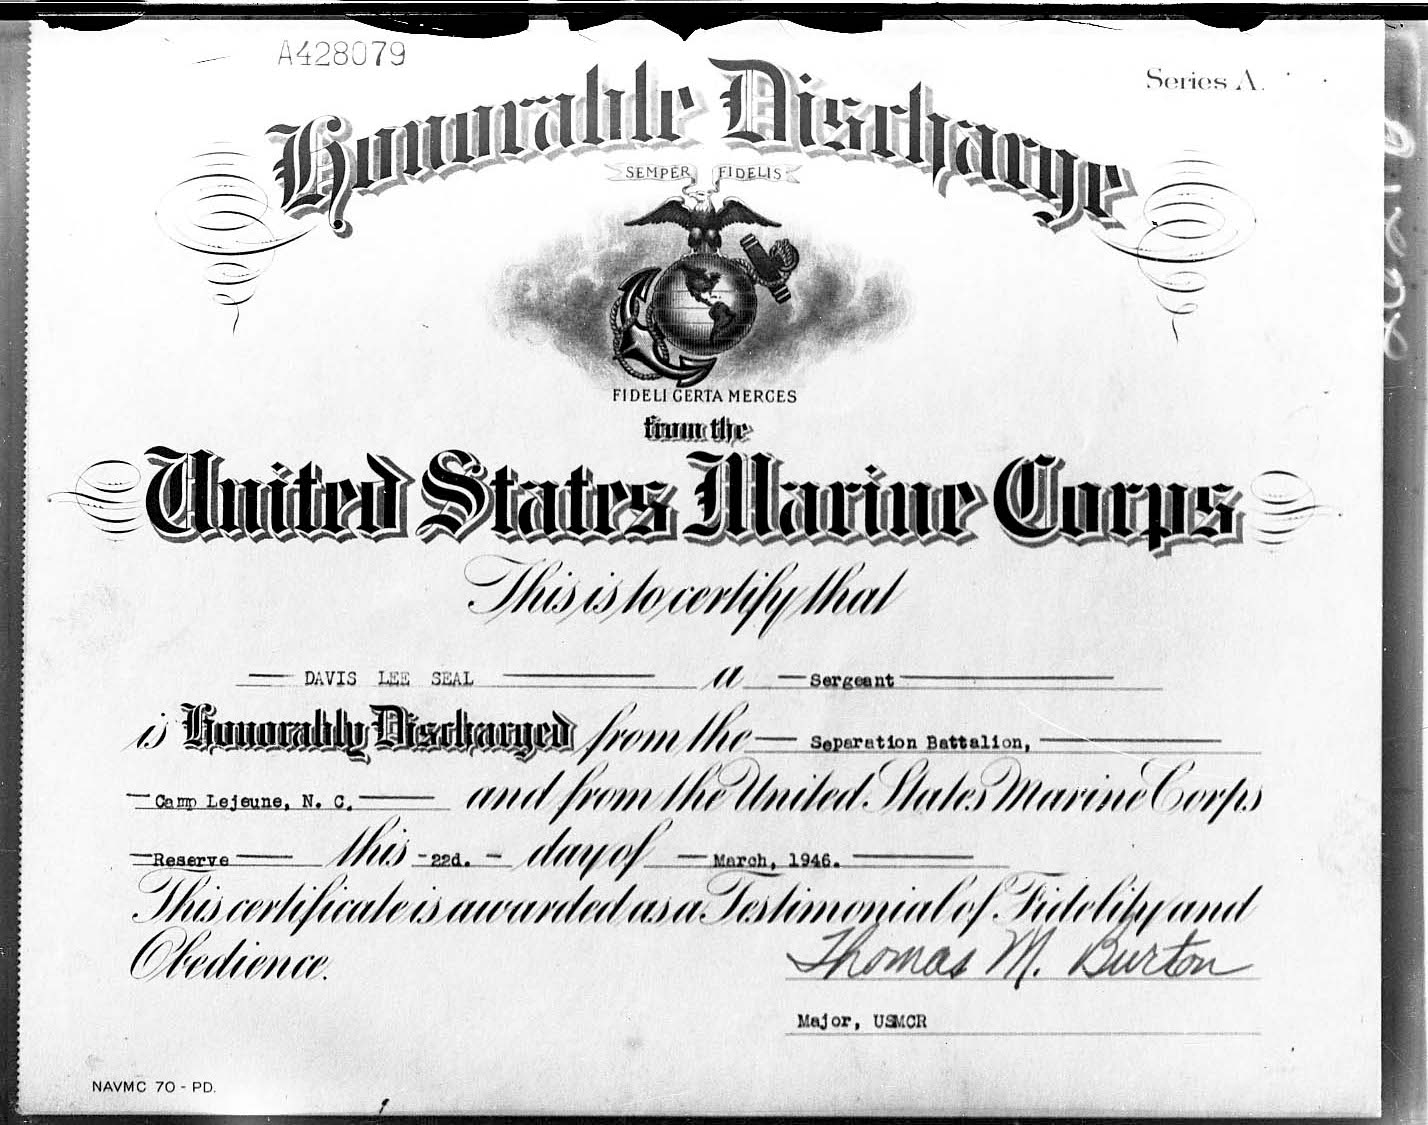 A428079
Series A.
Honorable Discharge
SEMPER FIDELIS
FIDELI CERTA MERCES
from the
United States Marine Corps
This is to certify that
— DAVIS LEE SEAL — a — Sergeant —
is Honorably Discharged from the — Separation Battalion, —
— Camp Lejeune, N. C. — and from the United States Marine Corps
— Reserve — this - 22d. - day of — March, 1946. —
This certificate is awarded as a Testimonial of Fidelity and
Obedience.
Thomas M. Burton
Major, USMCR
NAVMC 70 - PD.